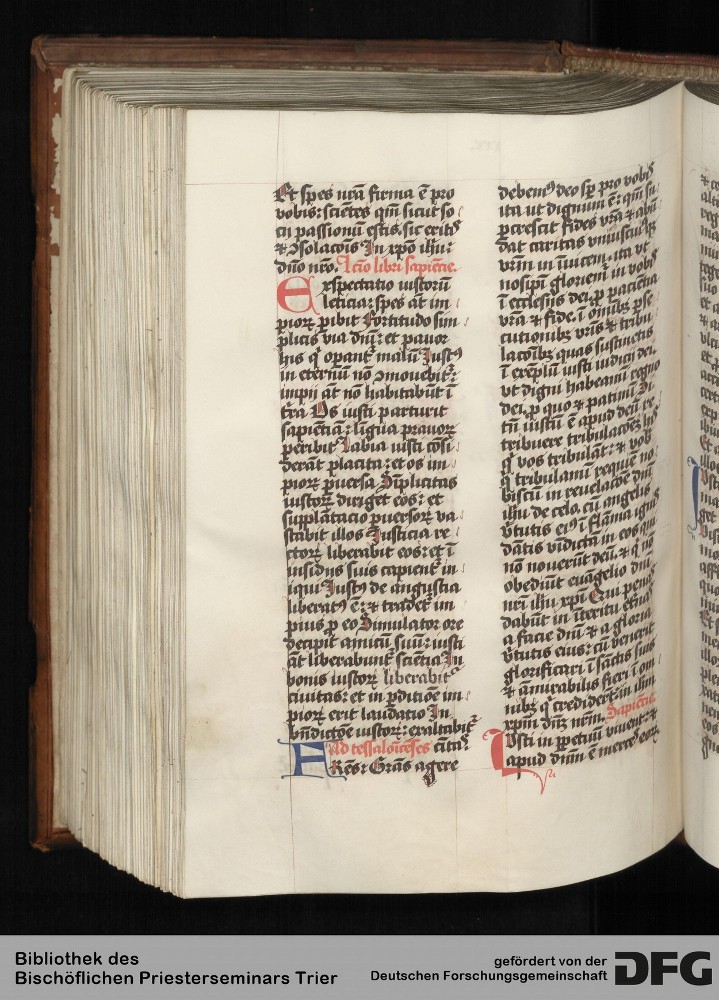 Et spes nrā firma ē pro
vobis: sciētes qm̄ sicut so
cii passionū estis. sic eritꝭ
⁊ ꝯsolacōis In xpō ihu:
dn̄o nr̄o. Lc̄io libri sapiēcie.
Exspectatio iustorū
leticia: spes āt im
pioꝝ ꝑibit Fortitudo sim
plicis via dnī: et pauor
hiis q̄ operant᷑ malū Iustꝰ
in eternū nō ꝯmouebit᷑:
impii āt nō habitabūt ī
t̄ra Os iusti parturit
sapiēciā: ligua prauoꝝ
peribit Labia iusti cōsi
derāt placita: et os im
pioꝝ ꝑuersa Simplicitas
iustoꝝ diriget eos: et
supplātacio ꝑuersoꝝ va
stabit illos Iusticia re
ctoꝝ liberabit eos: et ī
insidiis suis capient᷑ in
iqui Iustꝰ de angustia
liberatꝰ ē: ⁊ tradet᷑ im
pius ꝑ eo Simulator ore
decipit amicū suū: iusti
āt liberabunt᷑ sciētia In
bonis iustoꝝ liberabit᷑
ciuitas: et in ꝑditiōe im
pioꝝ erit laudatio In
bn̄dictōe iustoꝝ: exaltabit᷑
Ad tessalōicēses ciuita.
FRēs: Grās agere
debemꝰ deo sꝑ pro vobis
ita ut dignum ē: qm̄ su
ꝑcrescit fides vrā ⁊ abū
dat caritas vniuscuiusqꝫ
vrm̄ in inuicem. ita vt ⁊
nosipī gloriem̄ in vobis
ī ecclesiis dei. ꝑ paciētia
vrā ⁊ fide. ī oībꝫ ꝑse
cutionibꝫ vrīs ⁊ tribu
lacōibꝫ quas sustinetis
ī exeplū iusti iudicii dei.
vt digni habeamī regno
dei. ꝑ quo ⁊ patimī Si
tn̄ iustū ē apud deū re
tribuere tribulacōez hiis
qͥ vos tribulāt: ⁊ vob̄
q̄ tribulamī requiē no
biscū in reuelacōe dnī
ihu de celo. cū angelis
v̄tutis eiꝰ ī flāma ignis
dātis vīdicta in eos qui
nō nouerūt deū. ⁊ q̄ nō
obediūt euāgelio dnī
nrī ihu xpī Qui penas
dabūt in īteritu et̄nas
a facie dnī ⁊ a gloria
v̄tutis eius: cū venerit
glorificari ī sāctis suis
⁊ āmirabilis fieri ī om
nibꝫ q̄ crediderūt: in ihm̄
xpm̄ dn̄m nrm̄. Sapiēcie.
Iusti in ꝑpetuū viuent: ⁊
apud dn̄m ē merces eoꝝ
Bibliothek des
Bischöflichen Priesterseminars Trier
gefördert von der
Deutschen Forschungsgemeinschaft
DFG